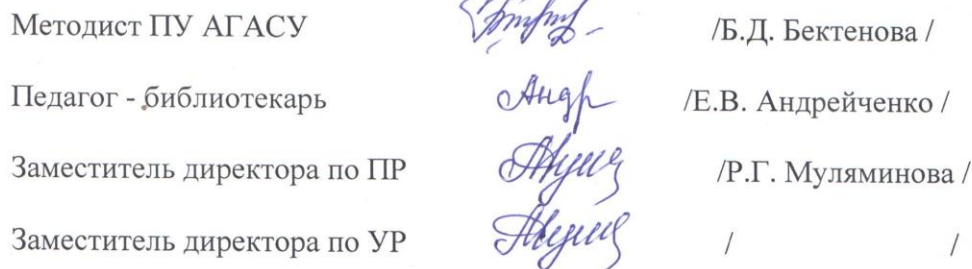 Методист ПУ АГАСУ /Б.Д. Бектенова /
Педагог - библиотекарь Андр /Е.В. Андрейченко /
Заместитель директора по ПР /Р.Г. Муляминова /
Заместитель директора по УР / /